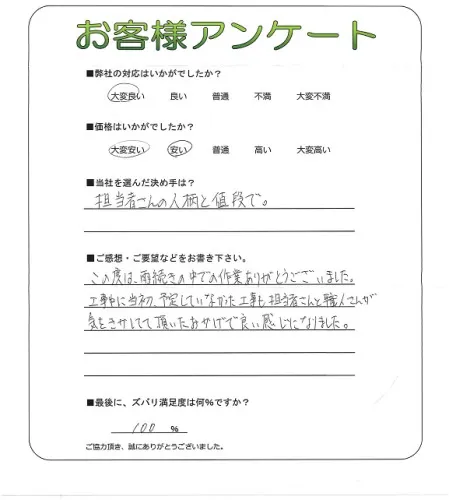 お客様アンケート
■弊社の対応はいかがでしたか？
大変良い 良い 普通 不満 大変不満
■価格はいかがでしたか？
大変安い 安い 普通 高い 大変高い
■当社を選んだ決め手は？
担当者さんの人柄と値段で。
■ご感想・ご要望などをお書き下さい。
この度は、雨続きの中での作業ありがとうございました。
工事中に当初、予定していなかった工事も、担当者さんと職人さんが
気をきかしてて頂いたおかげで良い感じになりました。
■最後に、ズバリ満足度は何%ですか？
100 %
ご協力頂き、誠にありがとうございました。